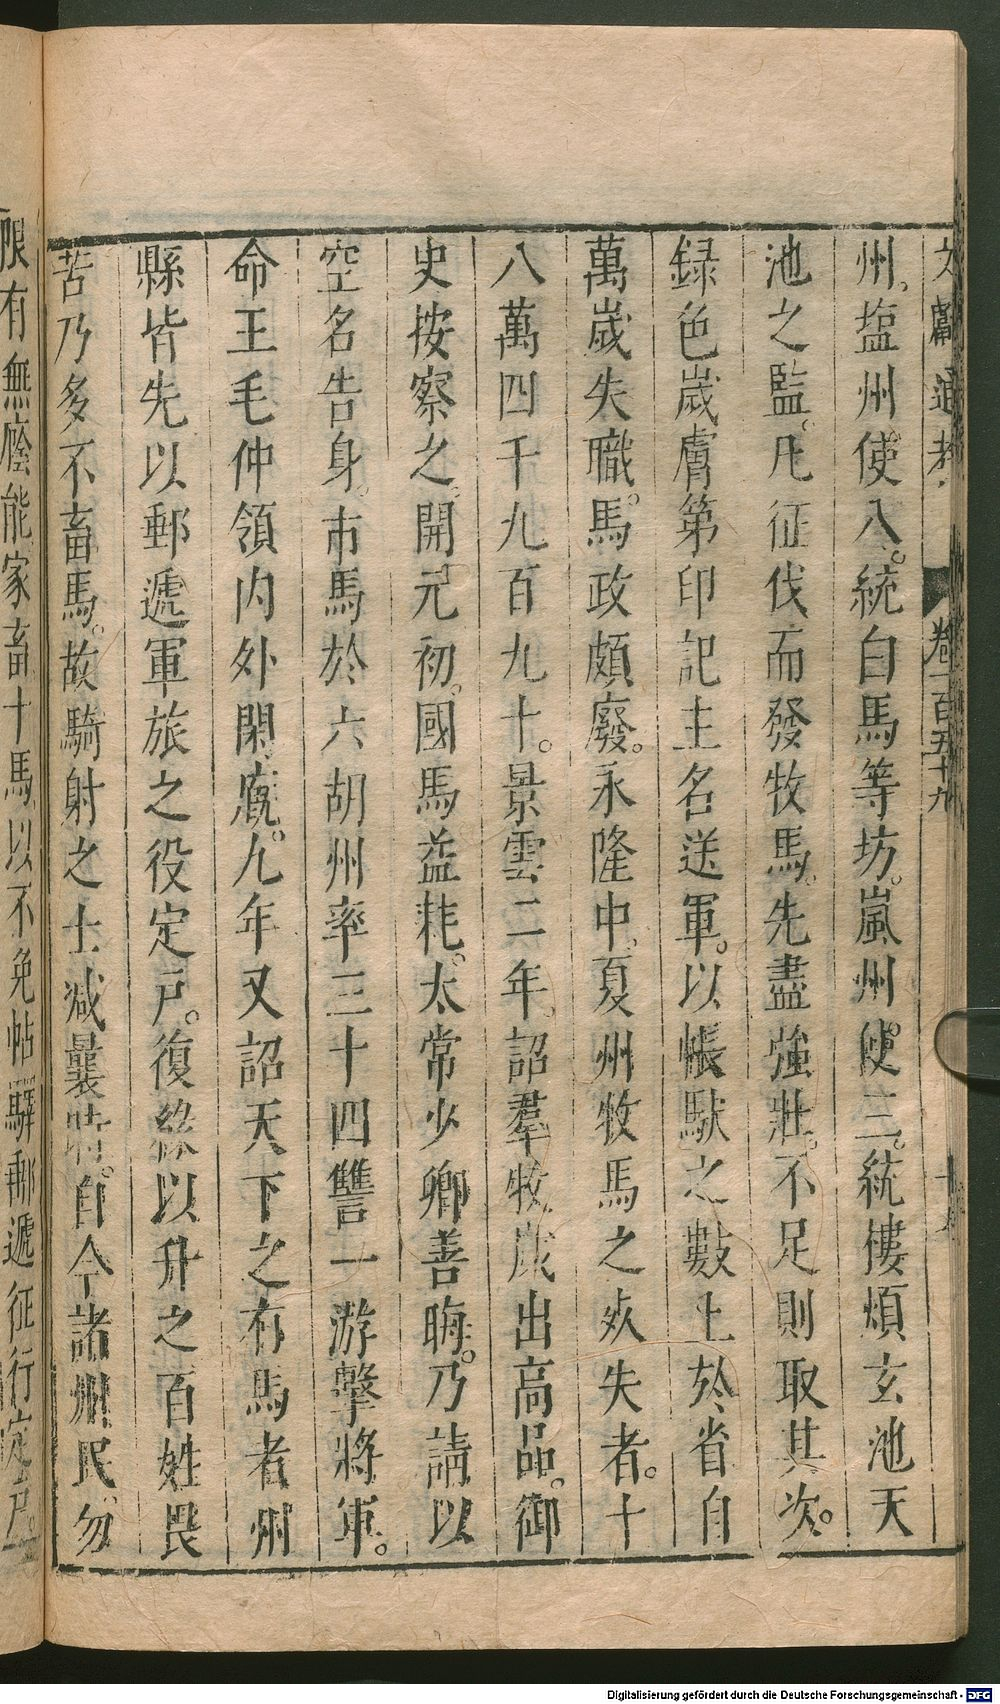 文獻通考 卷一百五十九
州。塩州。使八。統白馬等坊。嵐州。使三。統樓煩玄池天
池之監。凡征伐而發牧馬。先盡強壯。不足則取其次。
録色歲膚第印記主名送軍。以帳䭾之數上於省自
萬歲失職。馬政頗廢。永隆中。夏州牧馬之死失者。十
八萬四千九百九十。景雲二年。詔羣牧歲出高品。御
史按察之。開元初。國馬益耗。太常少卿善晦。乃請以
空名告身。市馬於六胡州率三十四讐一游擊將軍。
命王毛仲領内外閑廐。九年又詔天下之有馬者州
縣皆先以郵遞軍旅之役定戸。復緣以升之百姓畏
苦乃多不畜馬。故騎射之士減曩時。自今諸州民。勿
限有無廕能家畜十馬以不免帖驛郵遞征行定戸。
Digitalisierung gefördert durch die Deutsche Forschungsgemeinschaft - DFG